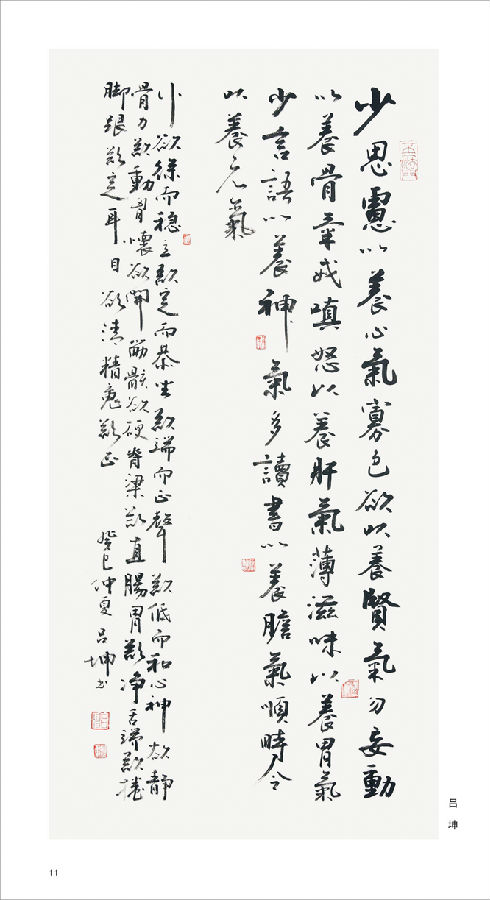 少思慮以養心氣寡色欲以養賢氣勿妄動
以養骨戒嗔怒以養肝氣薄滋味以養胃氣
少言語以養神氣多讀書以養膽氣順時令
以養元氣
行欲徐而穩立欲定而恭坐欲端而正聲欲低而和心神欲靜
骨力欲動胸懷欲開筋骸欲硬脊梁欲直腸胃欲净舌端欲捲
脚跟欲定耳目欲清精魂欲正
癸巳仲夏吕坤書
吕坤
11